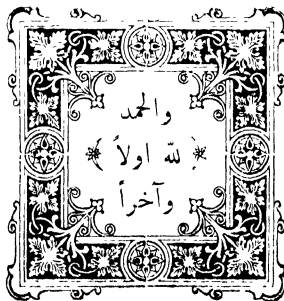 والحمد
لله اولاً
وآخراً